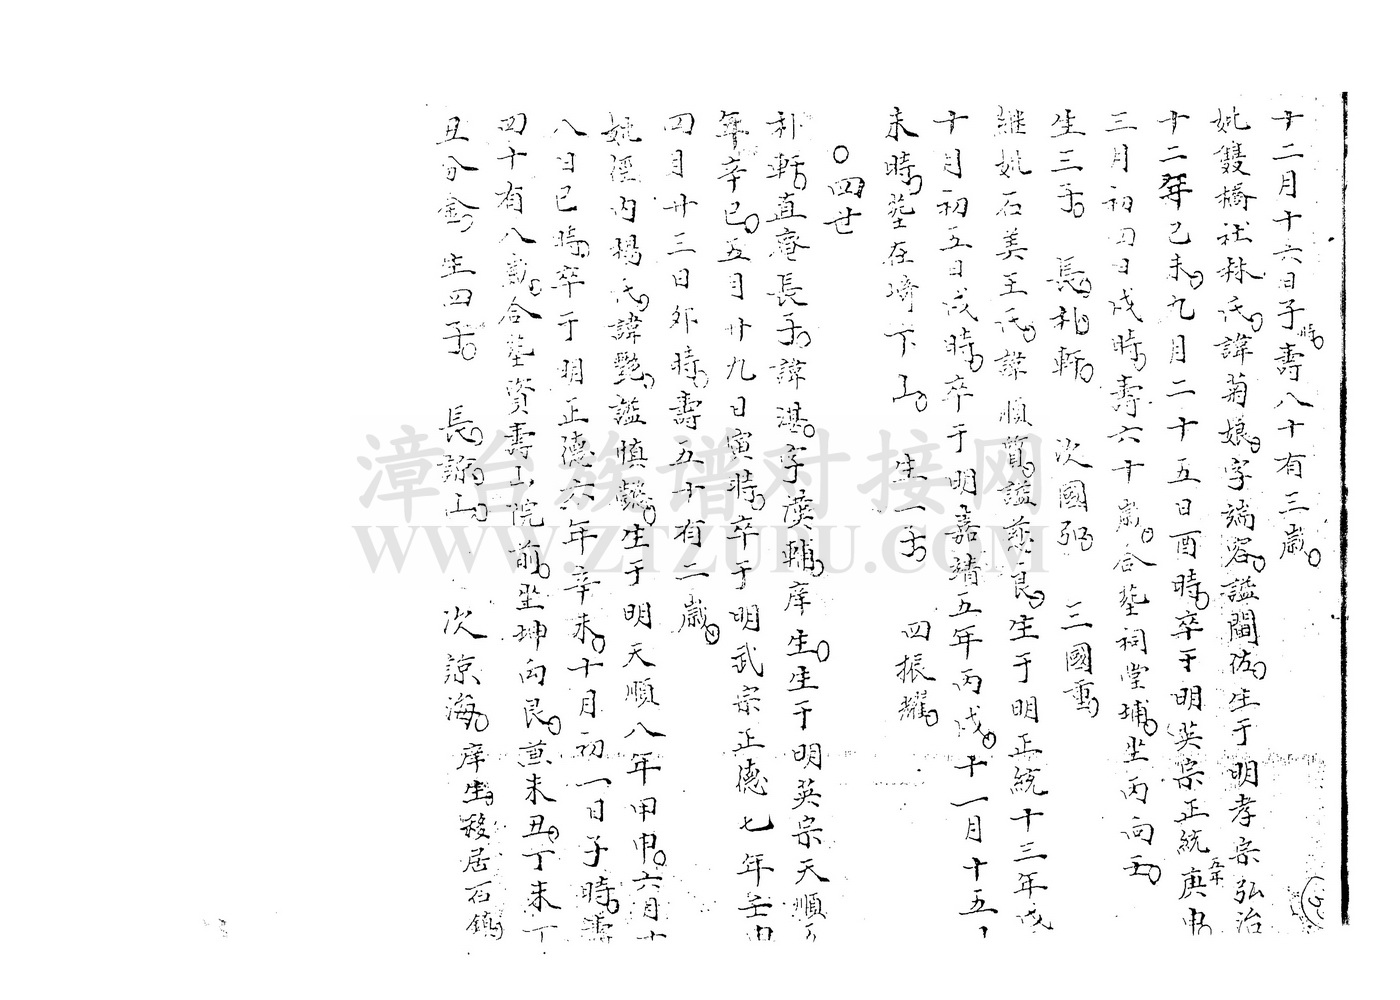 十二月十六日子時壽八十有三歲
妣雙橋社林氏諱菊娘字端容謚閫佐生于明孝宗弘治
十二年己未九月二十五日酉時卒于明英宗正統五年庚申
三月初四日戌時壽六十歲合塟祠堂埔坐丙向壬
生三子 長朴軒 次國弼 三國重
継妣石美王氏諱順質謚慈良生于明正統十三年戊
十月初五日戌時卒于明嘉靖五年丙戌十一月十五
未時塟在埼下山 生一子 四振耀
四世
朴軒直菴長子諱湛字漢輔庠生生于明英宗天順五
年辛巳五月廿九日寅時卒于明武宗正德七年壬申
四月廿三日卯時壽五十有二歲
妣浬内楊氏諱艷謚慎懿生于明天順八年甲申六月十
八日巳時卒于明正德六年辛未十月初一日子時壽
四十有八歲合塟資壽山院前坐坤向艮兼未丑丁未丁
丑分金生四子 長諒山 次諒海庠生移居石鎮
漳台族谱对接网
WWW.ZTZUPU.COM